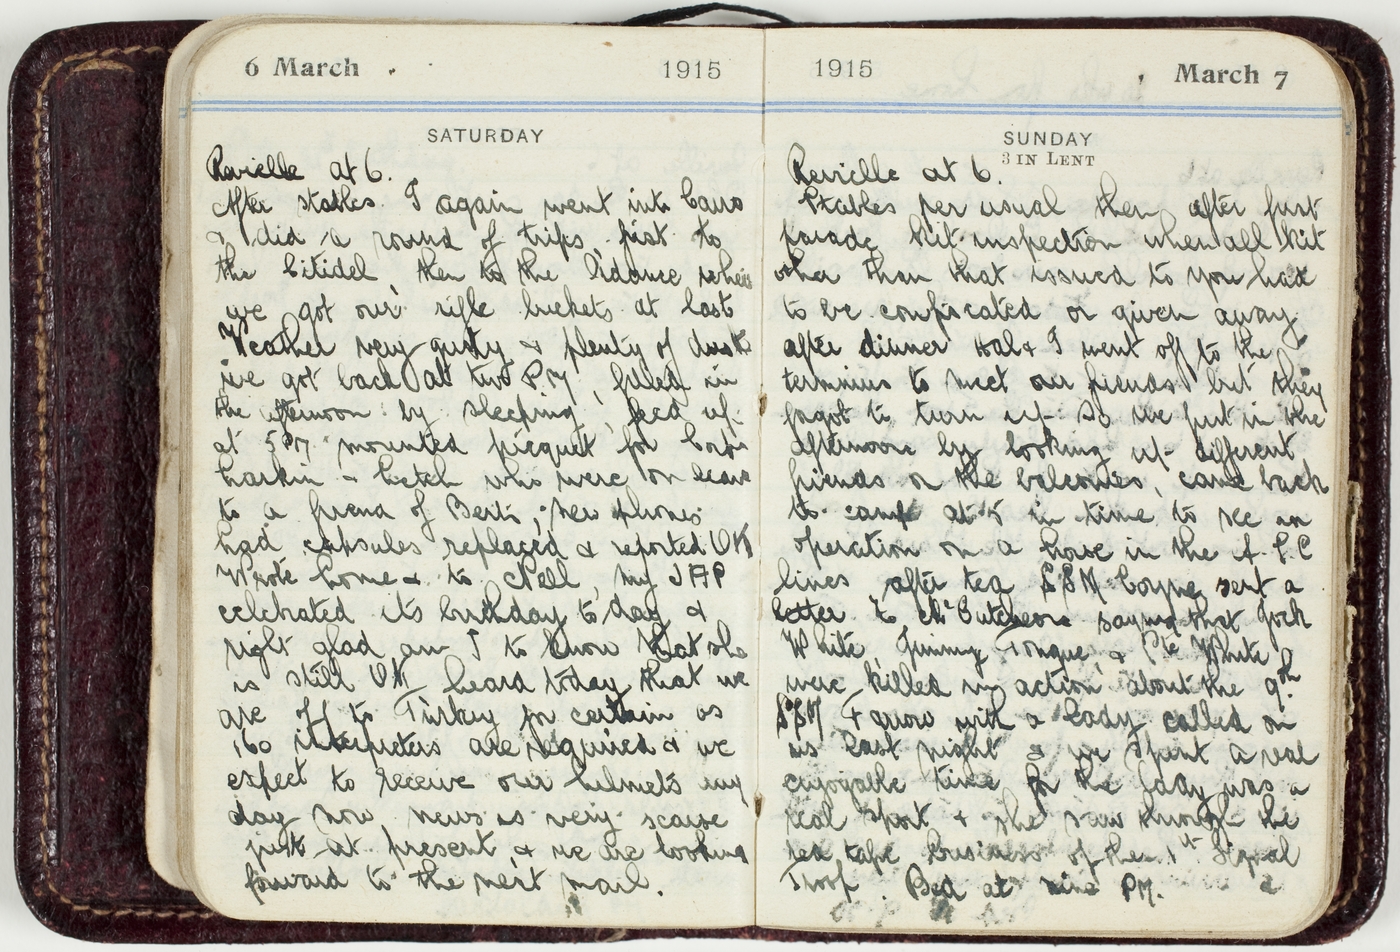 6 March 1915
SATURDAY
Revielle at 6.
After stables I again went into Cairo
& did a round of trips, first to
the Citidel then to the Ordance where
we got our rifle buckets at last
Weather very gusty & plenty of dust
we got back at two PM, filled in
the afternoon by sleeping, feed up
at 5PM mounted picquet for Corps
Larkin & which who were on leave
to a friend of Berts, new phones
had capsules replaced & reported OK
Wrote home & to Nell, my JAP
celebrated its birthday to day &
right glad am I to know that she
is still OK heard today that we
are off to Turkey for certain as
160 interpreters are required & we
expect to receive our helmets any
day now news is very scarse
just at present & we are looking
forward to the next mail.
1915 March 7
SUNDAY
3 IN LENT
Revielle at 6.
Stables per usual then after first
parade kit inspection when all kit
other than that issued to you had
to be confiscated or given away
after dinner Hal & I went off to the
terminus to meet our friends but they
forgot to turn up so we put in the
afternoon by looking up different
friends on the balconies, came back
to camp at 5 in time to see an
operation on a horse in the
lines after tea SSM Coyne sent a
letter to saying that Jock
White Jimmy Tongue, & Pte White
were killed in action about the 9th
SSM with a Lady called on
us last night & we spent a real
enjoyable time for the Lady was a
real sport & she saw through the
red tape business of the 1st Signal
Troop. Bed at nine PM.